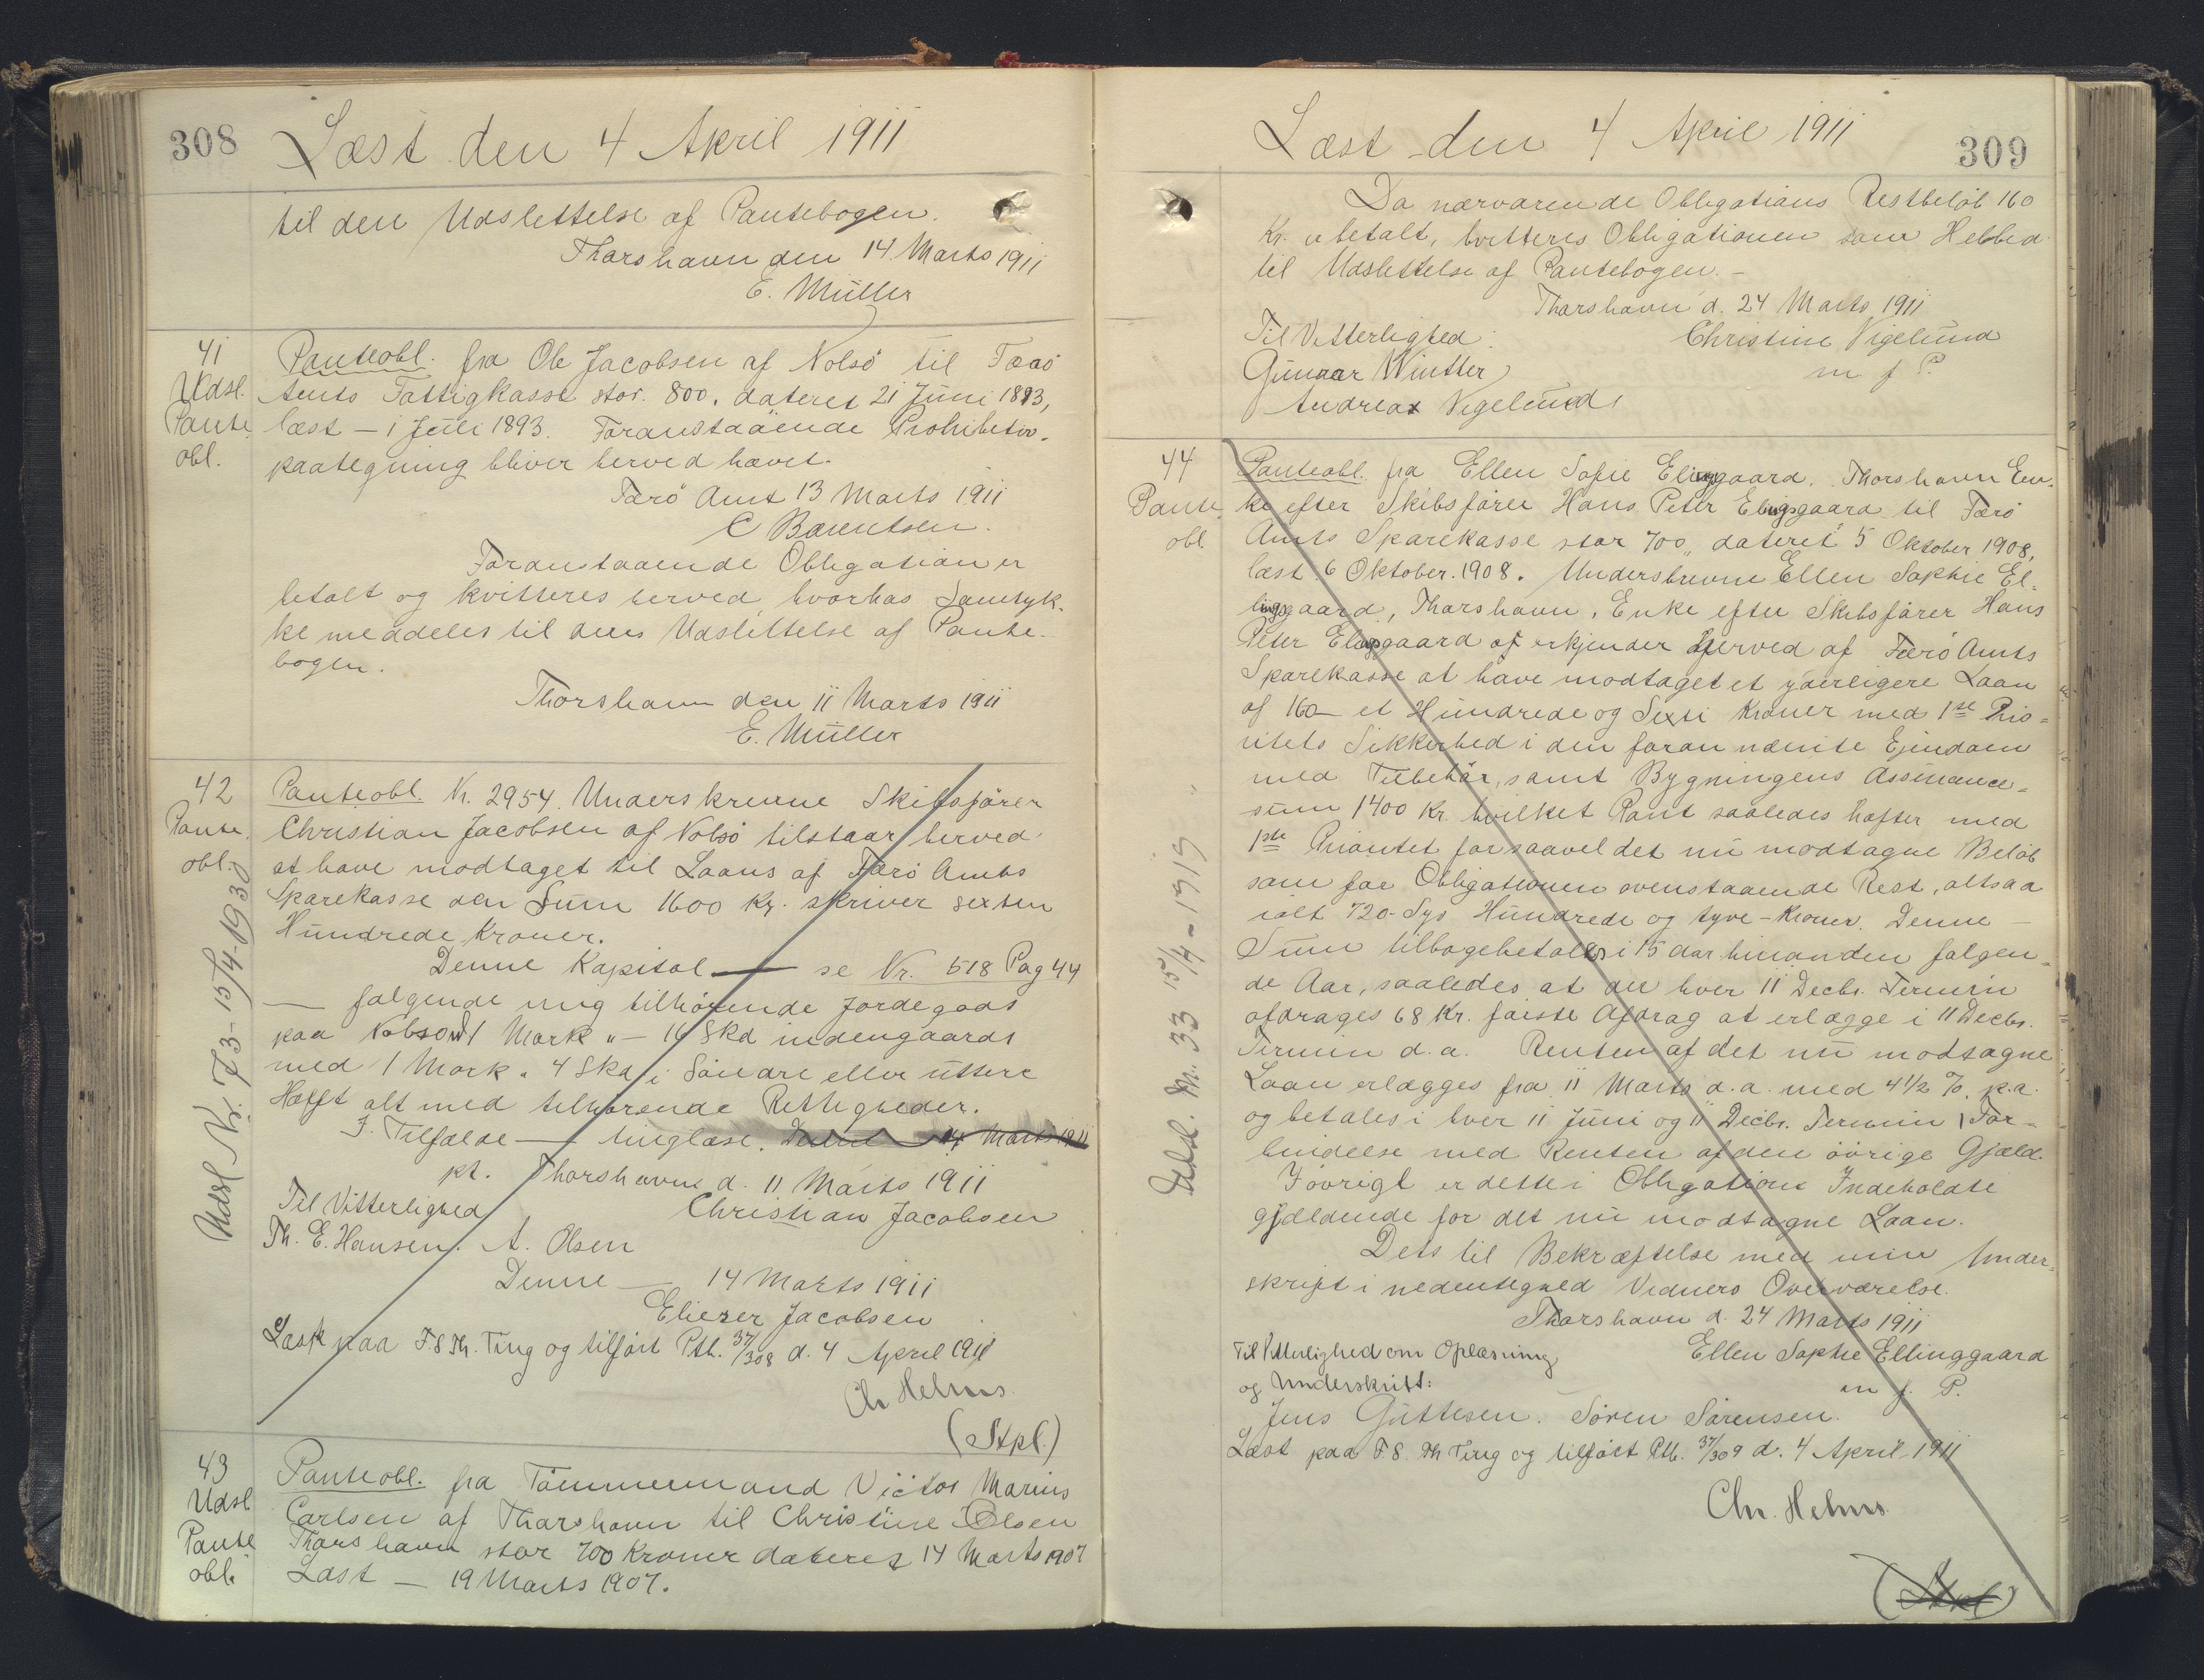 308
Læst den 4 April 1911
til den Udslettelse af Pantebogen.
Thorshavn den 14 Marts 1911
E. Müller
41
Udsl.
Pante
obl.
Panteobl. fra Ole Jacobsen af Nolsö til Færö
Amts Fattigkasse stor. 800. dateret 21 Juni 1893,
læst – 1 Juli 1893. Foranstaaende Prohibitiv-
paategning bliver herved hævet.
Færö Amt 13 Marts 1911
C Bærentsen.
Foranstaaende Obligation er
betalt og kvitteres herved, hvorhos Samtyk-
ke meddeles til dens Udslettelse af Pante-
bogen.
Thorshavn den 11 Marts 1911
E. Müller
42
Pante.
obl.
Udsl Nr. 73 - 15/4-1930
Panteobl. Kr. 2954. Underskrevne Skibsfører
Christian Jacobsen af Nolsö tilstaar herved
at have modtaget til Laans af Færö Amts
Sparekasse den Sum 1600 Kr. skriver sexten
Hundrede Kroner.
Denne Kapital — se Nr. 518 Pag 44
— følgende mig tilhørende Jordegods
paa Nolsö 1 Mark „ – 16 Skd indengaards
med 1 Mark „ 4 Skd i Söndre eller yttere
Hälft alt med tilhørende Rettigheder.
I Tilfælde — tinglæse. Denne 14 Marts 1911
pt. Thorshavn d. 11 Marts 1911
Til Vitterlighed
Christian Jacobsen
Th. E. Hansen. A. Olsen
Denne — 14 Marts 1911
Eliezer Jacobsen
Læst paa F. S Th. Ting og tilført Ptb. 37/308 d. 4 April 1911
Chr Helms.
(Stpl.)
43
Udsl
Pante
obl.
Panteobl. fra Tømmermand Victor Marius
Carlsen af Thorshavn til Christine Olsen
Thorshavn stor 700 Kroner dateret 14 Marts 1907
Læst — 19 Marts 1907.
Læst den 4 April 1911
309
Da nærværende Obligations Restbeløb 160
Kr. er betalt, kvitteres Obligationen som
til Udslettelse af Pantebogen. –
Thorshavn d. 24 Marts 1911
Til Vitterlighed:
Christine Vigelund
Gunnar Winther
m f P.
Andreas Vigelund
44
Pante
obl.
Udsl. Nr. 33 15/4 - 1919
Panteobl. fra Ellen Sofie Elingsgaard, Thorshavn En-
ke efter Skibsfører Hans Peter Elingsgaard til Færö
Amts Sparekasse stor 700 „ dateret 5 Oktober 1908,
læst 6 Oktober. 1908. Underskrevne Ellen Sophie El-
lingsgaard, Thorshavn, Enke efter Skibsfører Hans
Peter Elingsgaard af erkjender herved af Færö Amts
Sparekasse at have modtaget et yderligere Laan
af 160 – et Hundrede og Sexti Kroner med 1ste Prio-
ritets Sikkerhed i den foran nævnte Ejendom
med Tilbehør, samt Bygningens Assurance-
sum 1400 Kr. hvilket Pant saaledes hæfter med
1ste Prioritet for saavel det nu modtagne Beløb
som for Obligationen ovenstaaende Rest, altsaa
ialt 720 - Syv Hundrede og tyve – Kroner. Denne
Sum tilbagebetales i 15 aar hinanden følgen-
de Aar, saaledes at der hver 11 Decbr. Termin
afdrages 68 Kr. første Afdrag at erlægge i 11 Decbr.
Termin d. a. Renten af det nu modtagne
Laan erlægges fra 11 Marts d. a. med 4 1/2 % p. a.
og betales i hver 11 Juni og 11 Decbr. Termin i For-
bindelse med Renten af den övrige Gjæld.
Iövrigt er dette i Obligations Indeholdte
gjældende for det nu modtagne Laan.
Dets til Bekræftelse med min Under-
skrift i nedentegned Vidners Overværelse.
Thorshavn d. 24 Marts 1911
Til Vitterlighed om Oplæsning
Ellen Sophie Ellinggaard
og Underskrift:
m f. P.
Jens Guttesen. Sören Sörensen.
Læst paa F. S. Th Ting og tilført Ptb. 37/309 d. 4 April 1911
Chr. Helms.
(Stpl)